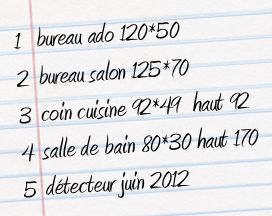 1 bureau ado 120*50
2 bureau salon 125*70
3 coin cuisine 92*49 haut 92
4 salle de bain 80*30 haut 170
5 détecteur juin 2012